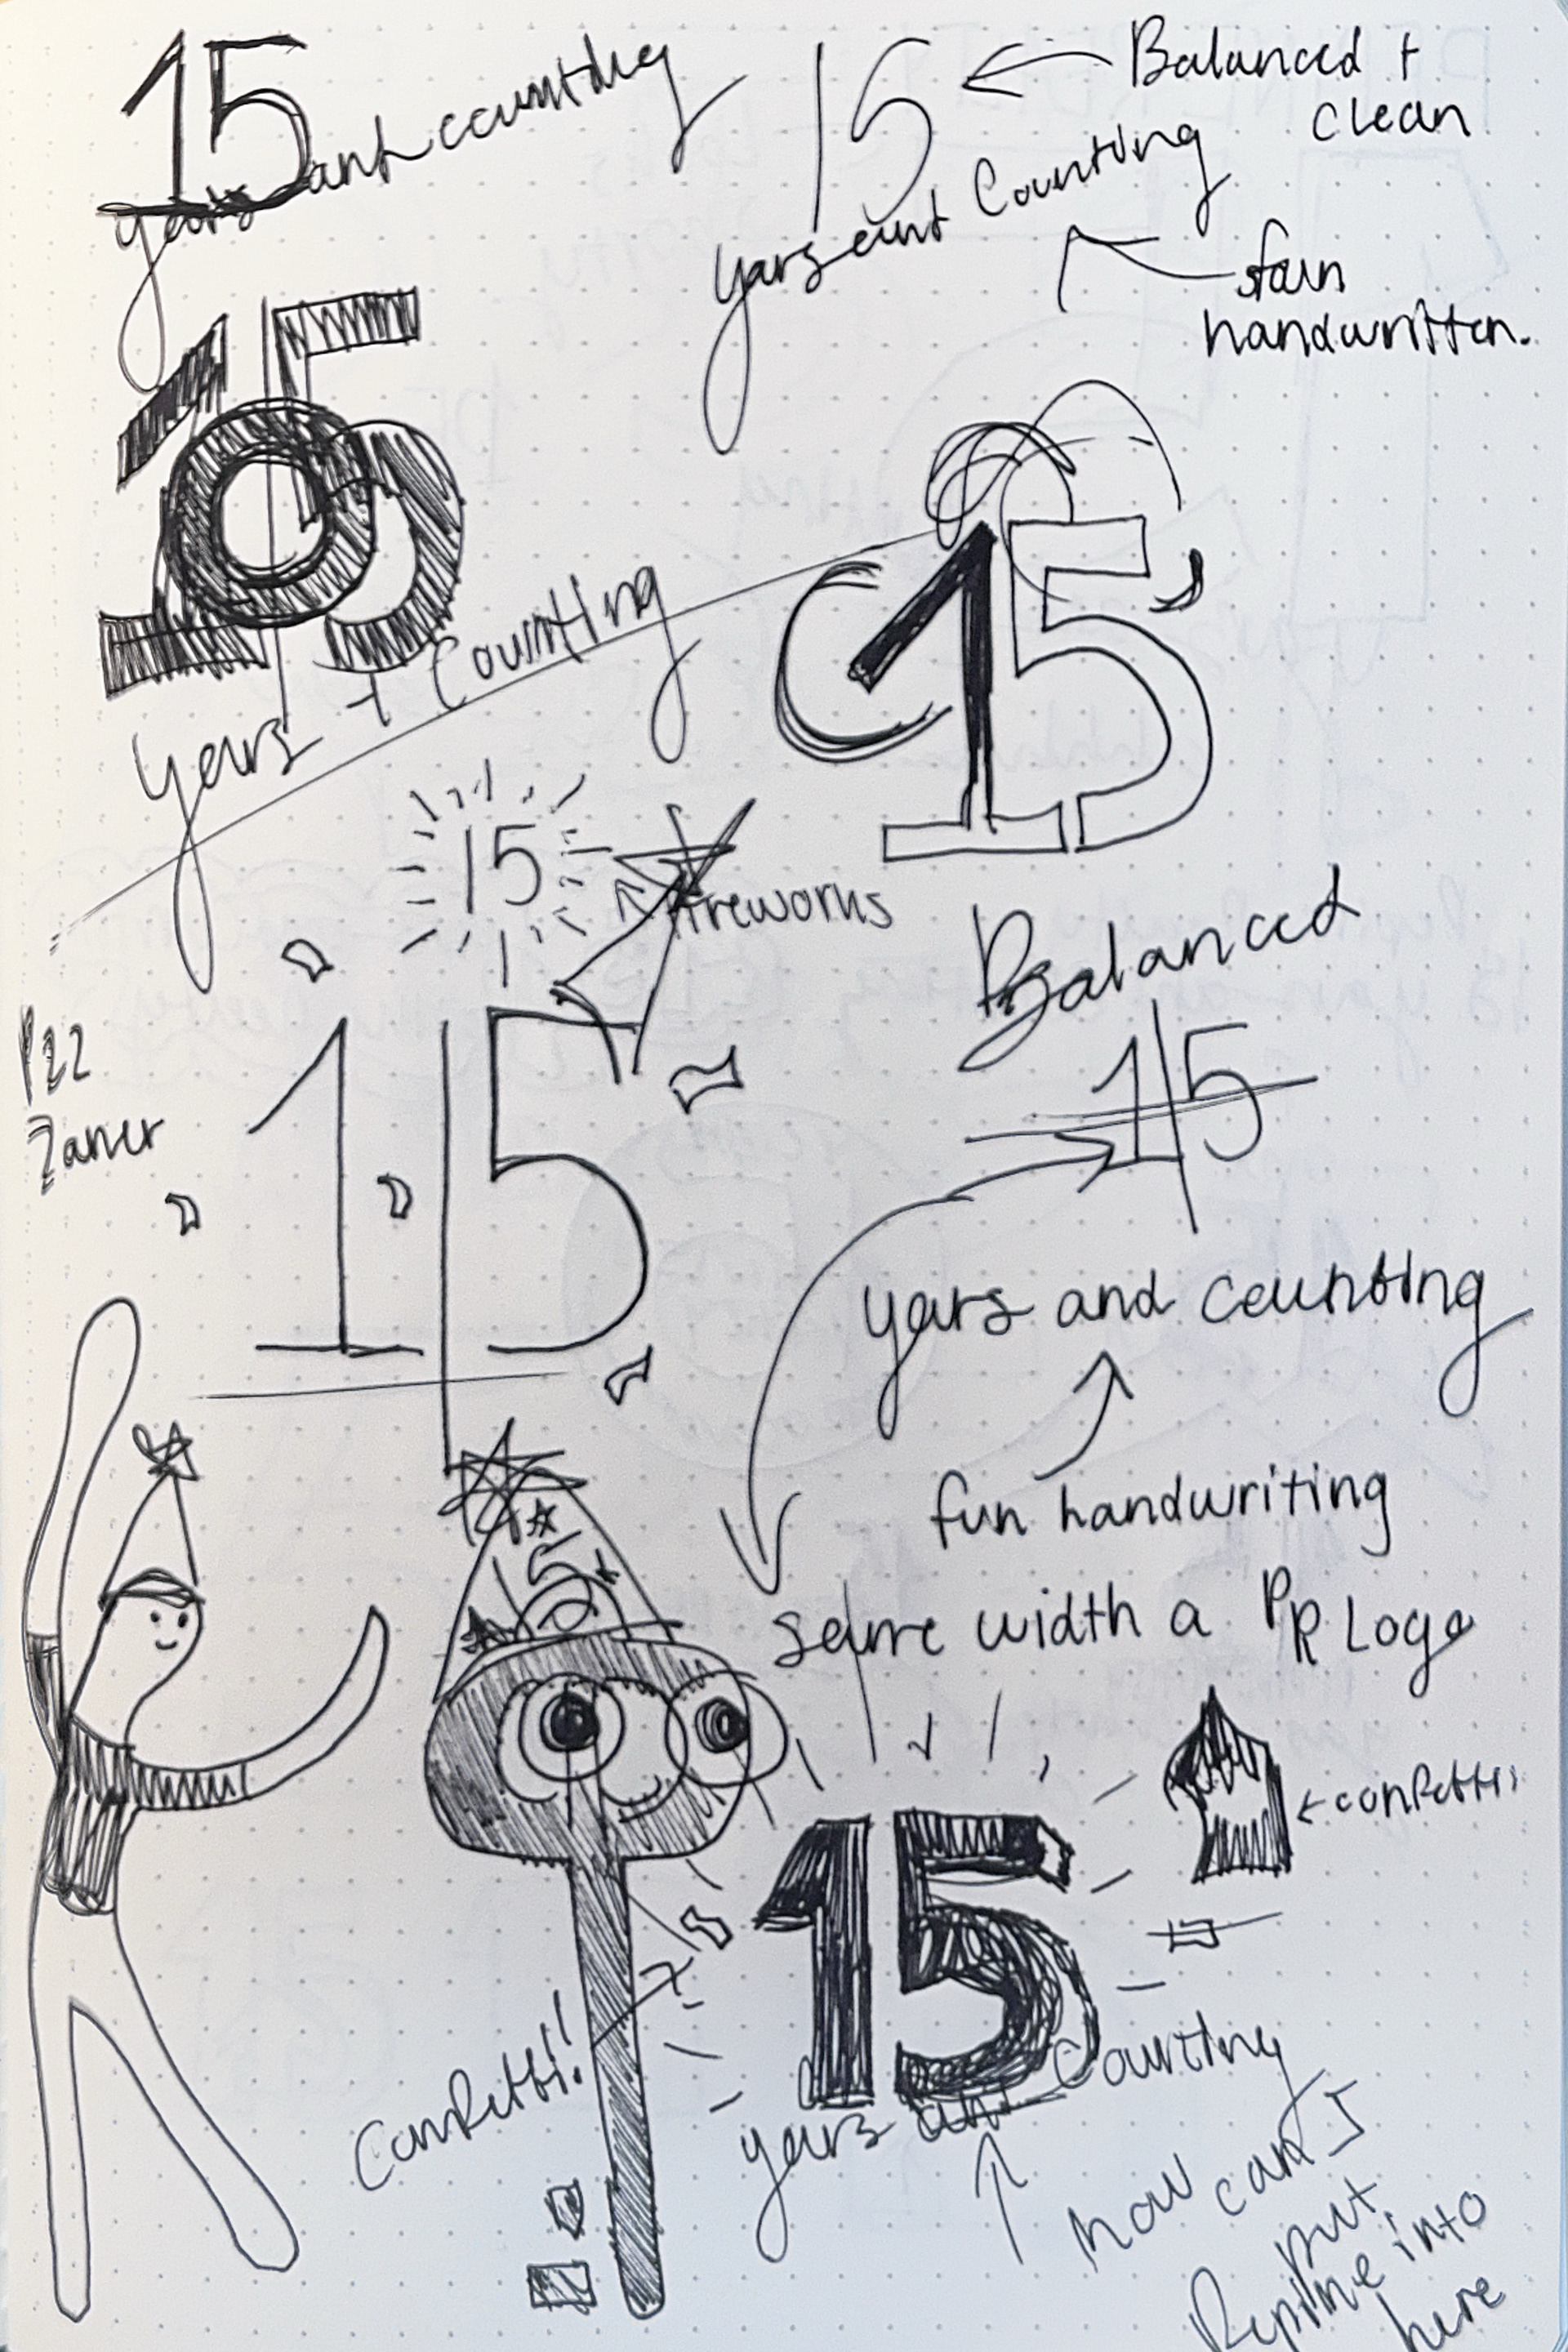 15
years and counting
15
Balanced +
clean
years and Counting
fun
handwritten.
15
years + Counting
15
15
fireworks
P22
Zaner
15
Balanced
15
years and counting
fun handwriting
same width a PR Logo
15
15
confetti
Confetti!
years and Counting
how can I
put
into
here